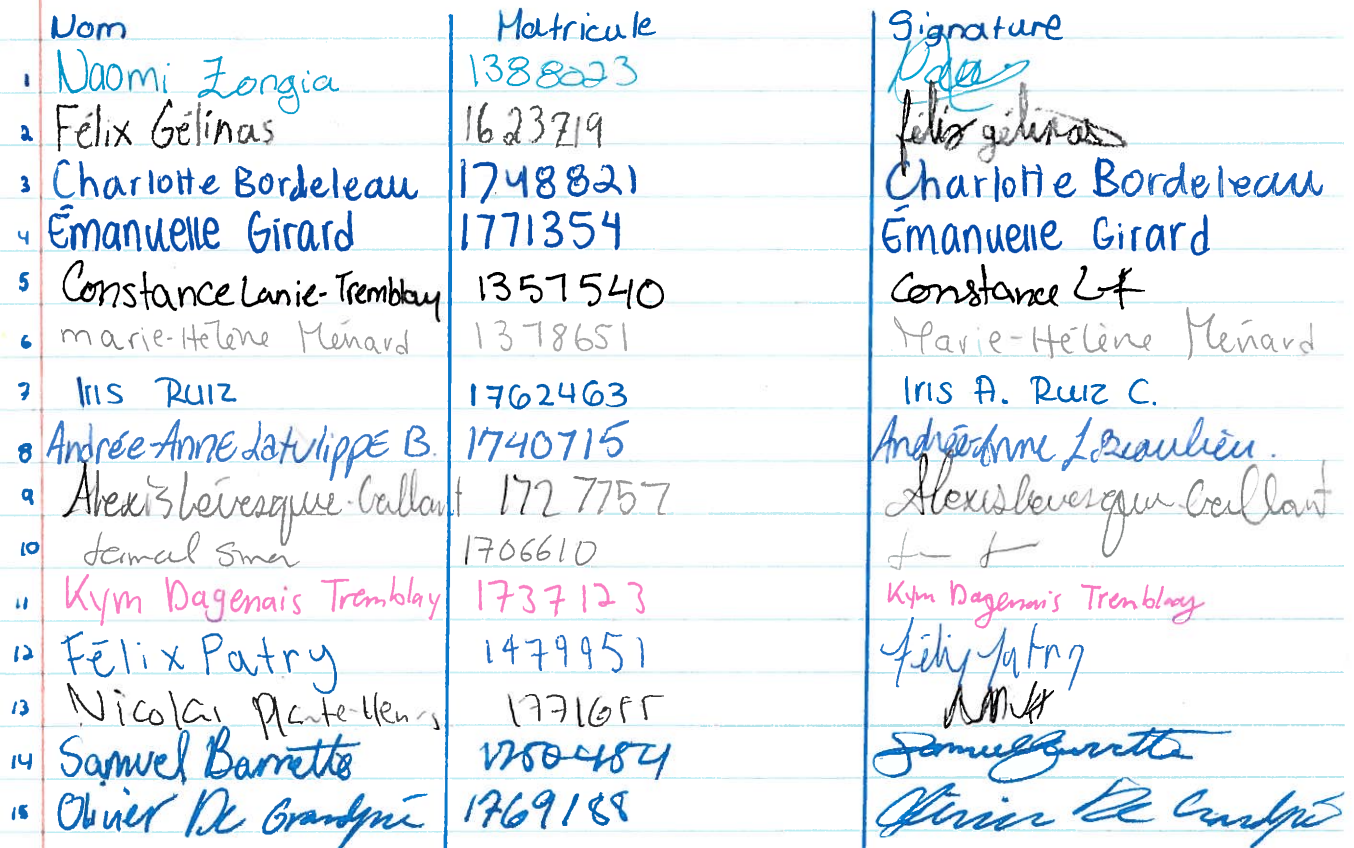 Nom Matricule Signature
1 Naomi Zongia 1388023
2 Félix Gélinas 1623719 félix gélinas
3 Charlotte Bordeleau 1748821 Charlotte Bordeleau
4 Émanuelle Girard 1771354 Émanuelle Girard
5 Constance Lanie-Tremblay 1357540 Constance LT
6 marie-Hélène Ménard 1378651 Marie-Hélène Ménard
7 Iris Ruiz 1762463 Iris A. Ruiz C.
8 Andrée-Anne Latulippe B. 1740715 Andrée-Anne L Beaulieu.
9 Alexis Lévesque-Gallant 1727757 Alexis Levesque-Gallant
10 1706610
11 Kym Dagenais Tremblay 1737123 Kym Dagenais Tremblay
12 Félix Patry 1479951 Félix Patry
13 Nicolas Plante
14 Samuel Barrette Samuel Barrette
15 Olivier De Grandpré 1769188 Olivier De Grandpré